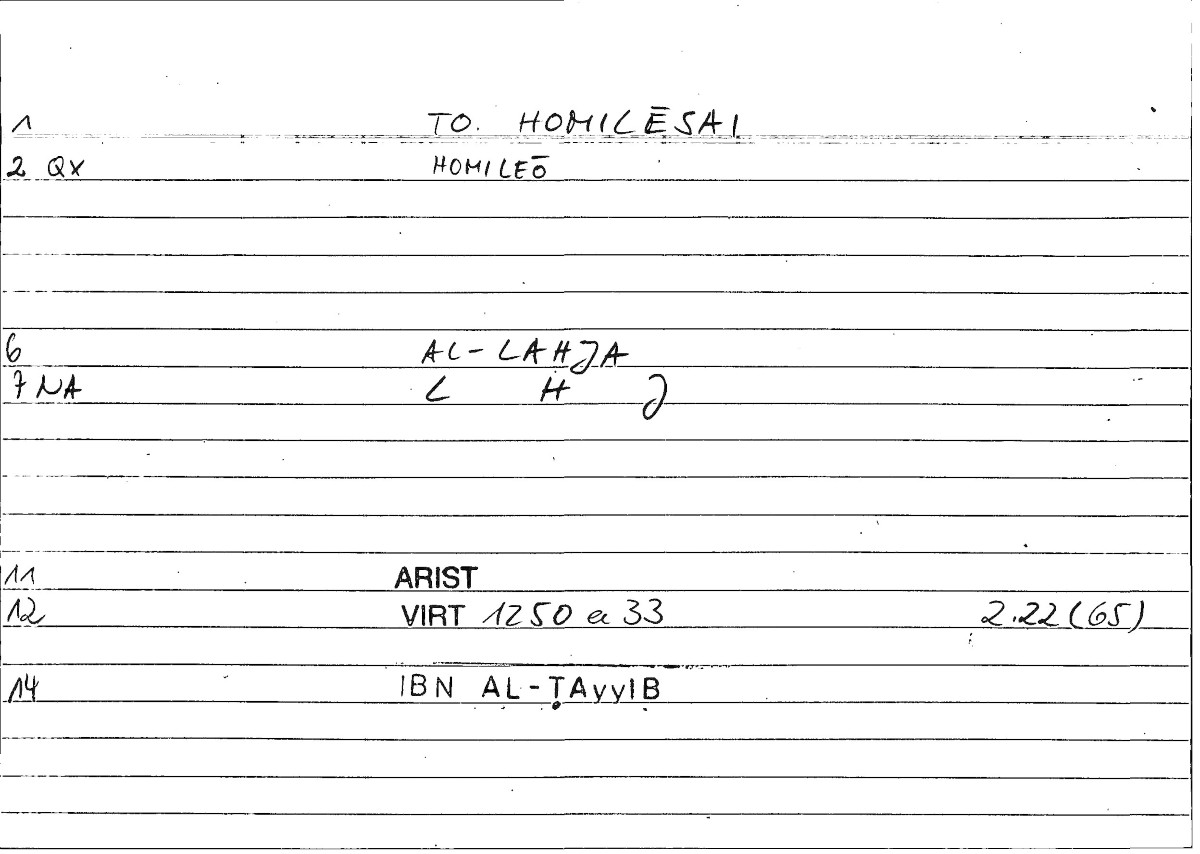 1 TO. HOMILĒSAI
2 QX HOMILEŌ
6 AL-LAHJA
7 NA L H J
11 ARIST
12 VIRT 1250 a 33 2.22 (65)
14 IBN AL-ṬAyyIB